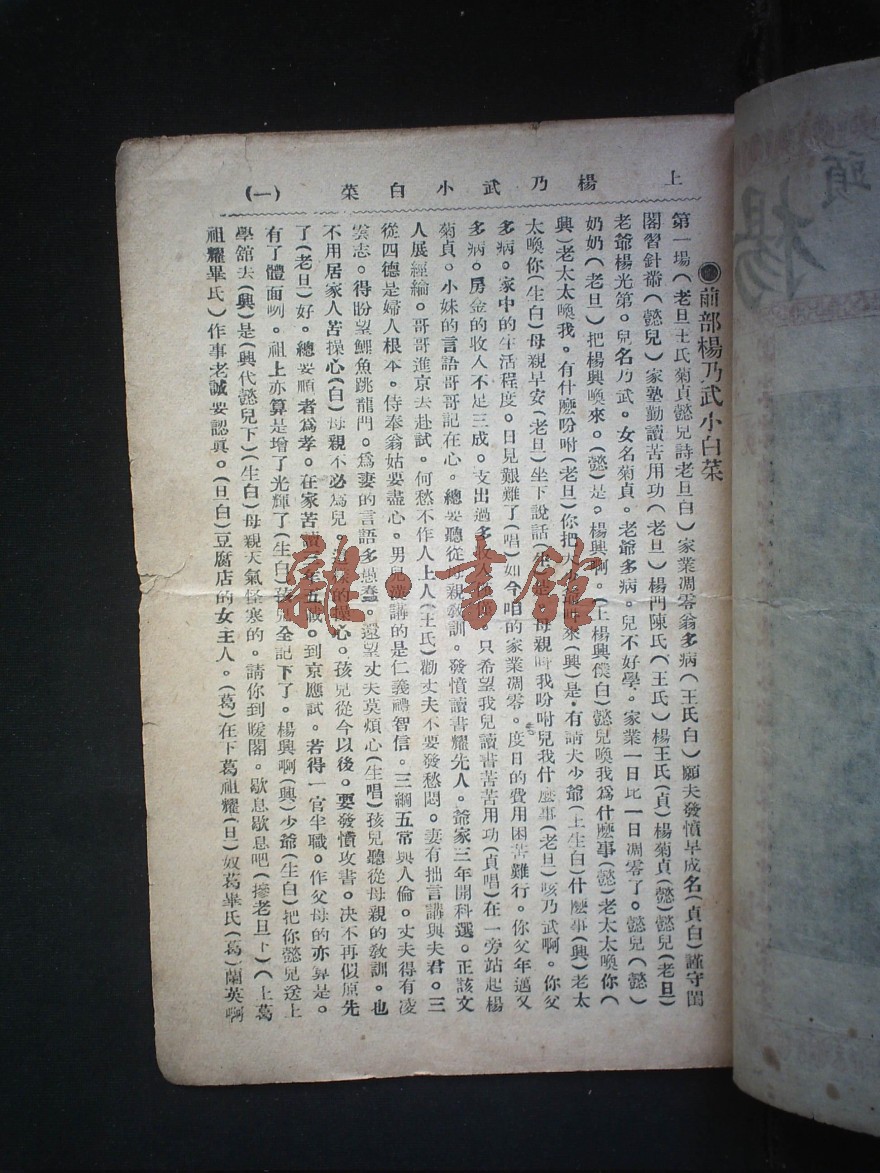 上 楊乃武小白菜 (一)
●前部楊乃武小白菜
第一場(老旦王氏菊貞懿兒詩老旦白)家業凋零翁多病(王氏白)願夫發憤早成名(貞白)謹守閨
閣習針黹(懿兒)家塾勤讀苦用功(老旦)楊門陳氏(王氏)楊王氏(貞)楊菊貞(懿)懿兒(老旦)
老爺楊光第。兒名乃武。女名菊貞。老爺多病。兒不好學。家業一日比一日凋零了。懿兒(懿)
奶奶(老旦)把楊興喚來。(懿)是。楊興啊。(上楊興僕白)懿兒喚我爲什麽事(懿)老太太喚你(
興)老太太喚我。有什麽吩咐(老旦)你把大少爺叫來(興)是。有請大少爺(上生白)什麽事(興)老太
太喚你(生白)母親早安(老旦)坐下說話(生)是。母親叫我吩咐兒我什麽事(老旦)咳乃武啊。你父
多病。家中的生活程度。日見艱難了(唱)如今咱的家業凋零。度日的費用困苦難行。你父年邁又
多病。房金的收入不足三成。支出過多收入。只希望我兒讀書苦苦用功(貞唱)在一旁站起楊
菊貞。小妹的言語哥哥記在心。總要聽從母親敎訓。發憤讀書耀先人。爺家三年開科選。正該文
人展經綸。哥哥進京去赴試。何愁不作人上人(王氏)勸丈夫不要發愁悶。妻有拙言講與夫君。三
從四德是婦人根本。侍奉翁姑要盡心。男兒漢講的是仁義禮智信。三綱五常與人倫。丈夫得有凌
雲志。得盼望鯉魚跳龍門。爲妻的言語多愚蠢。還望丈夫莫煩心(生唱)孩兒聽從母親的敎訓。也
不用居家人苦操心(白)母親不必爲兒。的操心。孩兒從今以後。要發憤攻書。决不再似原先
了(老旦)好。總要順者爲孝。在家苦讀三年五載。到京應試。若得一官半職。作父母的亦算是。
有了體面咧。祖上亦算是增了光輝了(生白)孩兒全記下了。楊興啊(興)少爺(生白)把你懿兒送上
學舘去(興)是(興代懿兒下)(生白)母親天氣怪寒的。請你到暖閣。歇息歇息吧(摻老旦下)(上葛
祖耀畢氏)作事老誠要認眞。(旦白)豆腐店的女主人。(葛)在下葛祖耀(旦)奴葛畢氏(葛)蘭英啊
雜·書舘
頭
楊